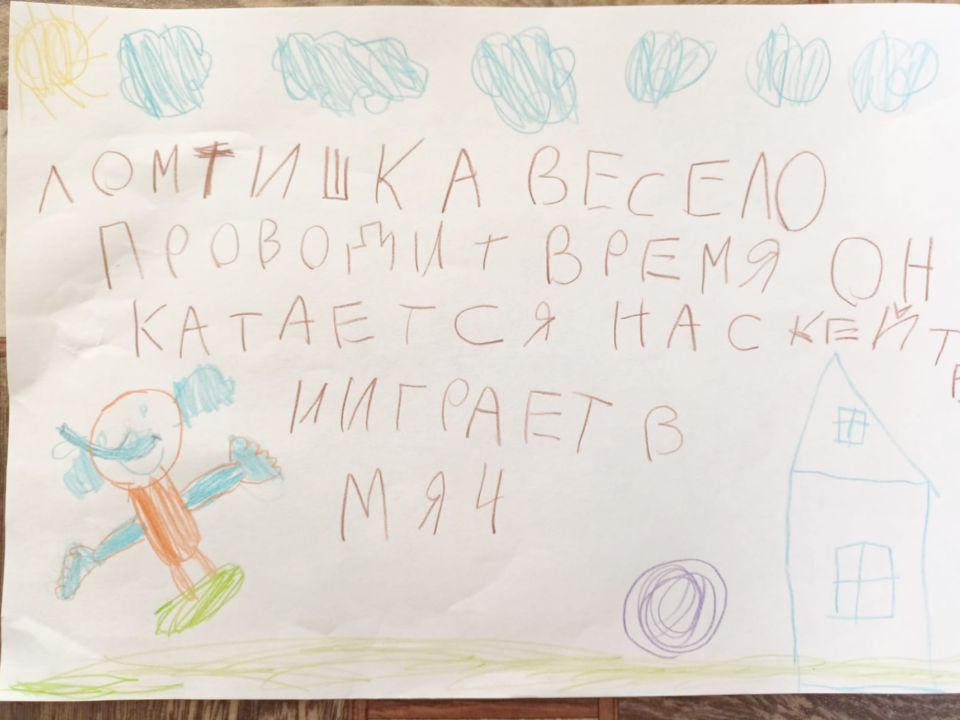 ЛОМТИШКА ВЕСЕЛО
ПРОВОДИТ ВРЕМЯ ОН
КАТАЕТСЯ НА СКЕЙТ
ИИГРАЕТ В
МЯЧ